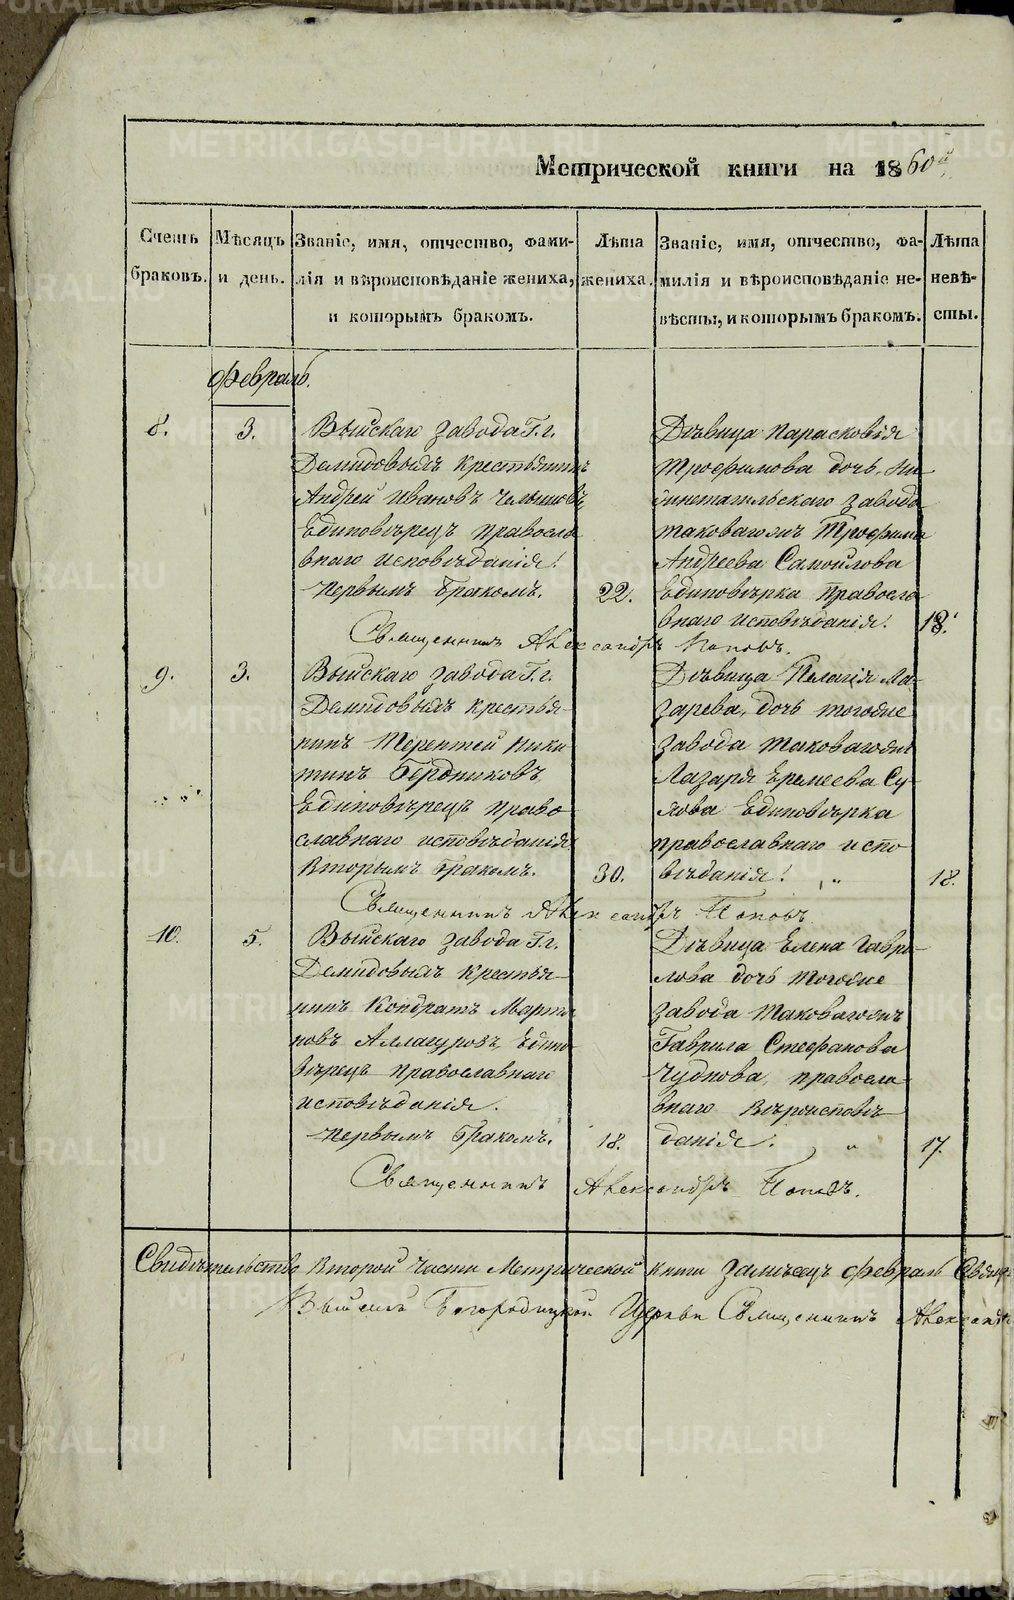 Метрической книги на 1860й
Счетъ браковъ.
Мѣсяцъ и день.
Званіе, имя, отчество, фами-
лія и вѣроисповѣданіе жениха,
и которымъ бракомъ.
Лѣта жениха.
Званіе, имя, отчество, фа-
милія и вѣроисповѣданіе не-
вѣсты, и которымъ бракомъ.
Лѣта невѣ-
сты.
Февраль.
8.
3.
Выйскаго завода Г.г.
Демидовыхъ крестьянинъ
Андрей Ивановъ
Единовѣрецъ правосла
внаго исповѣданія!
Первымъ бракомъ.
22.
Дѣвица Парасковія
Трофимова дочь, Ни
жнетагильскаго завода
таковагожъ Трофима
Андреева Самойлова
Единовѣрка правосла
внаго исповѣданія.
18.
Священникъ Александръ Поповъ.
9.
3.
Выйскаго завода Г.г.
Демидовыхъ крестья-
нинъ Терентей Ники
тинъ Бердниковъ
Единовѣрецъ право-
славнаго исповѣданія
Вторымъ бракомъ.
30.
Дѣвица Пелагія Ла-
зарева, дочь тогоже
завода таковагожъ
Лазаря Еремеева Су-
Единовѣрка
православнаго испо
вѣданія!
18.
Священникъ Александръ Поповъ
10.
5.
Выйскаго завода Г.г.
Демидовыхъ крестья-
нинъ Кондратъ Марты
новъ Едино
вѣрецъ православнаго
исповѣданія.
Первымъ бракомъ.
18.
Дѣвица Елена Гаври-
лова дочь тогоже
завода таковагожъ
Гаврила Стефанова
Чуднова, правосла
внаго вѣроисповѣ-
данія.
17.
Священникъ Александръ Поповъ.
Свидѣтельство второй части Метрической книги за мѣсяцъ Февраль
Богородицкой Церкви Священникъ
METRIKI.GASO-URAL.RU